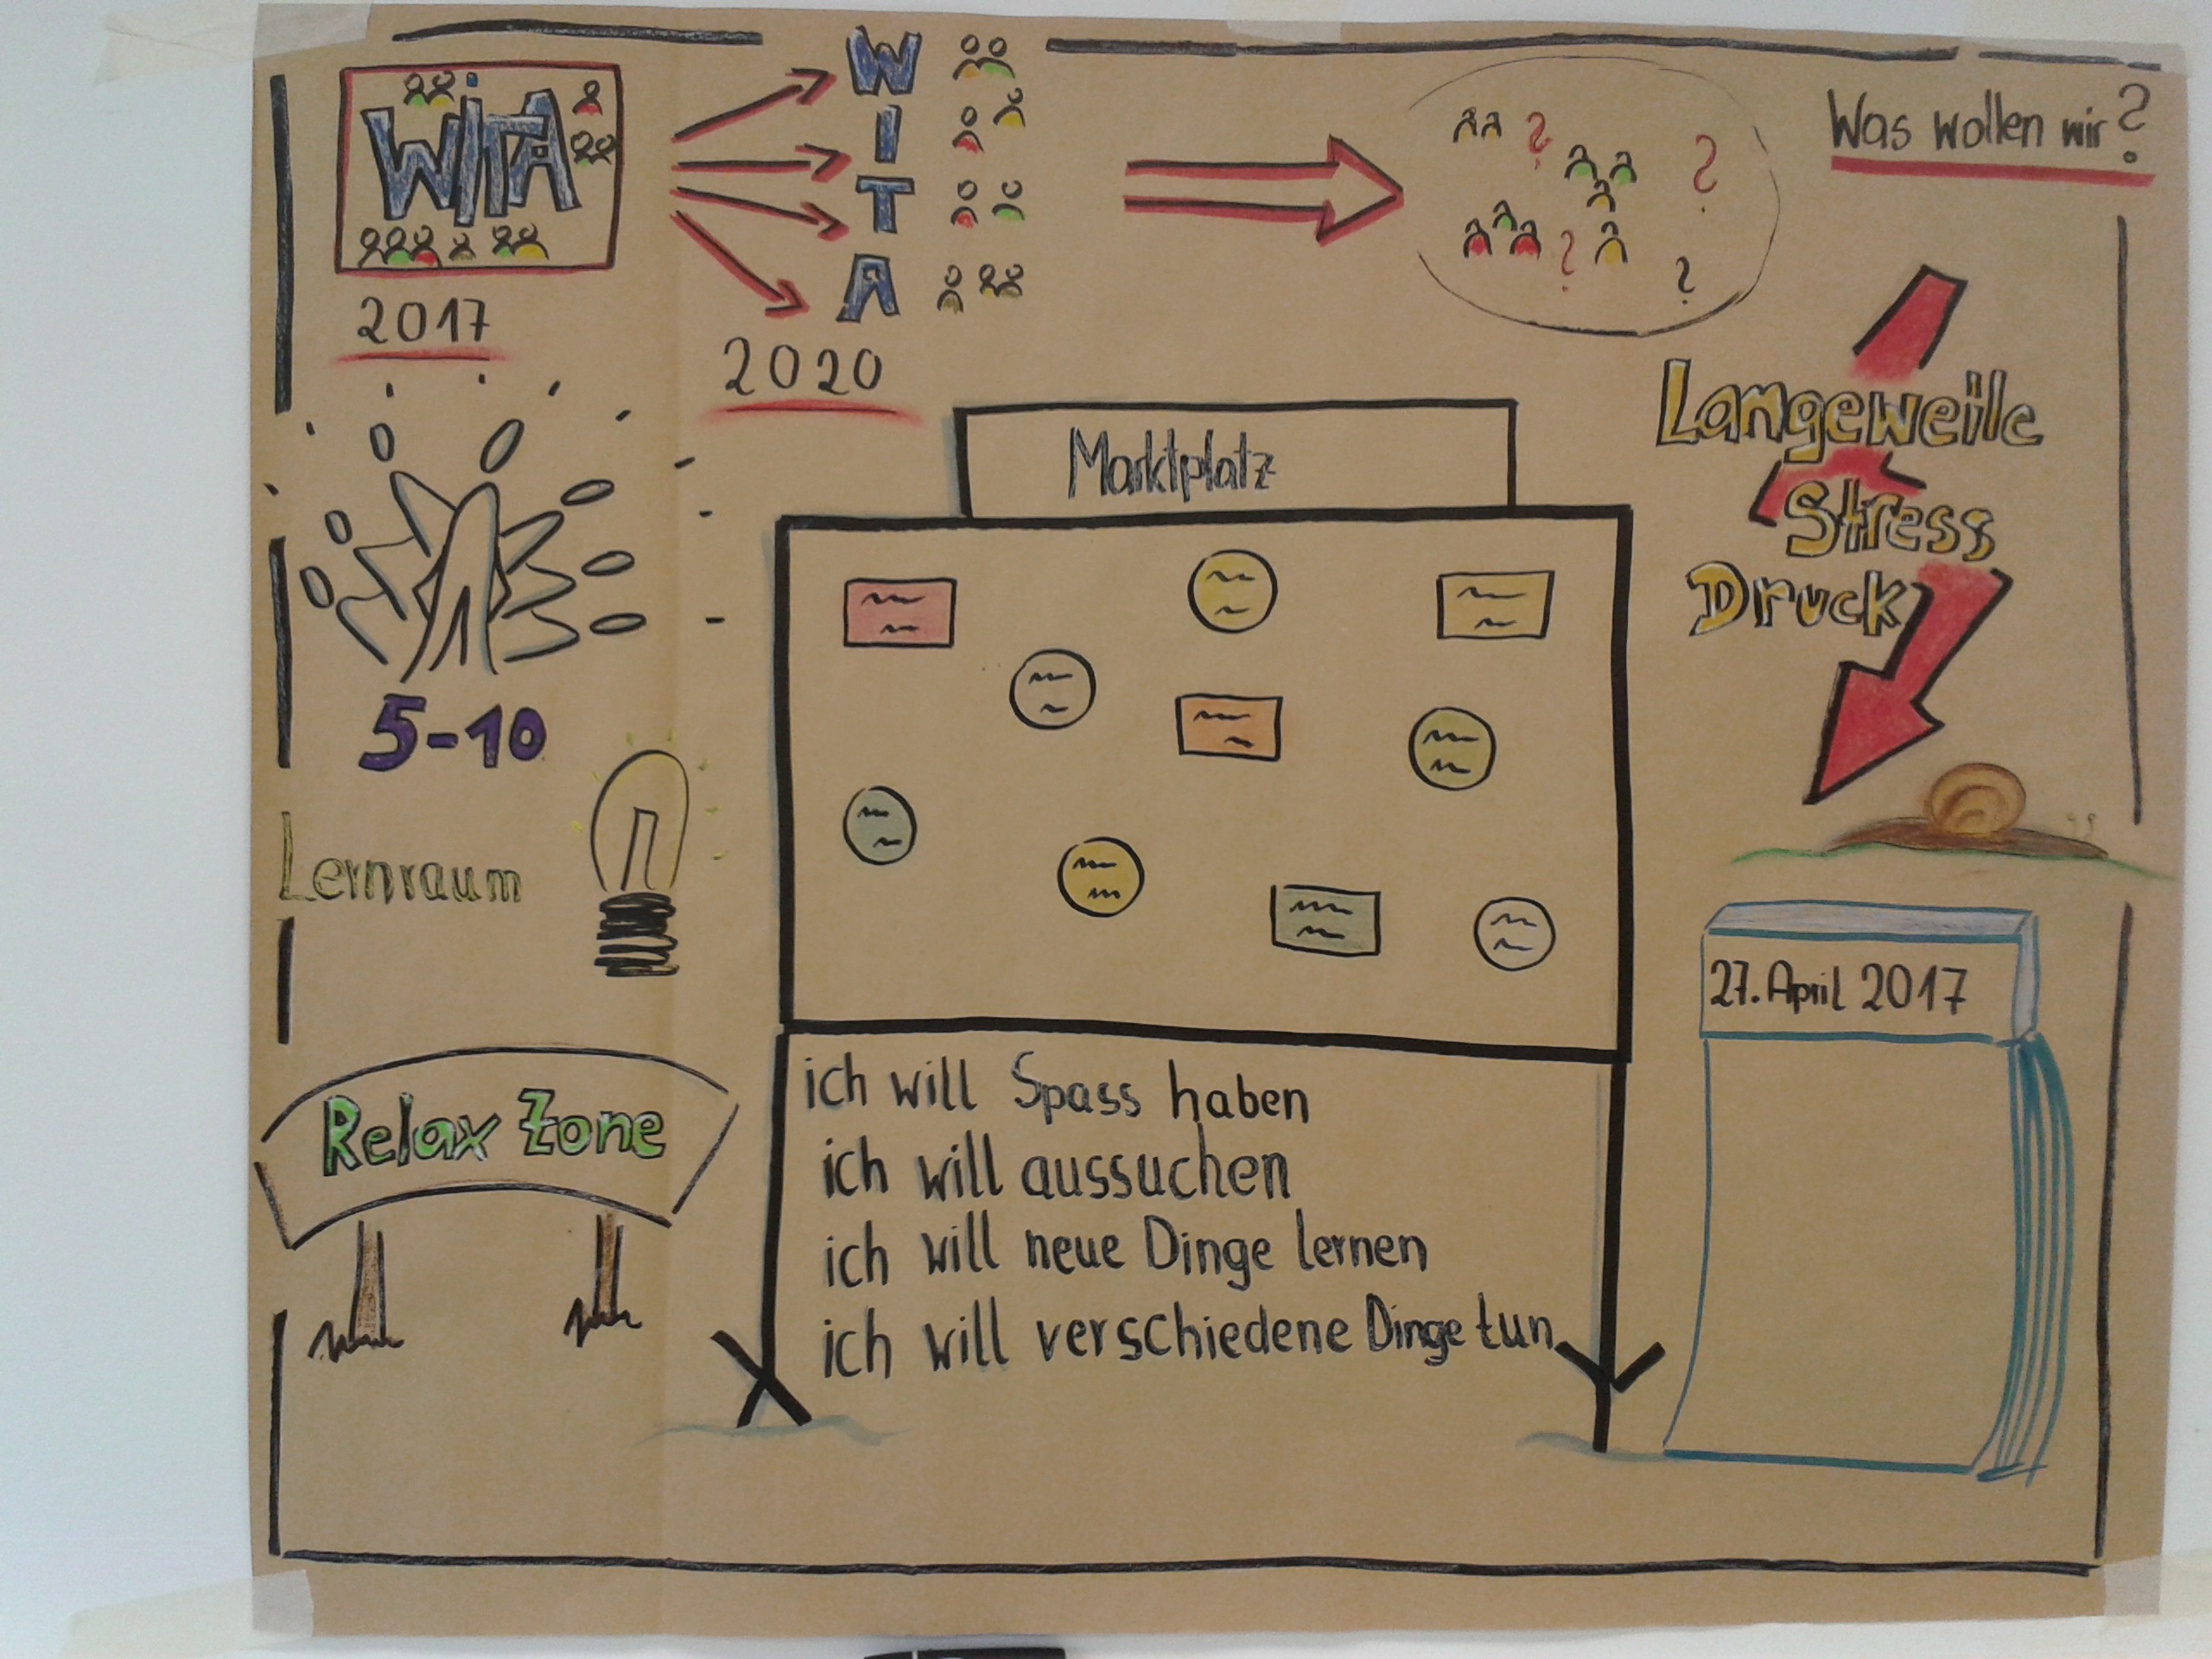 WiTA
2017
W
I
T
A
2020
?
?
?
?
Was wollen wir?
Langeweile
Stress
Druck
5-10
Lernraum
Relax Zone
Marktplatz
ich will Spass haben
ich will aussuchen
ich will neue Dinge lernen
ich will verschiedene Dinge tun
27. April 2017